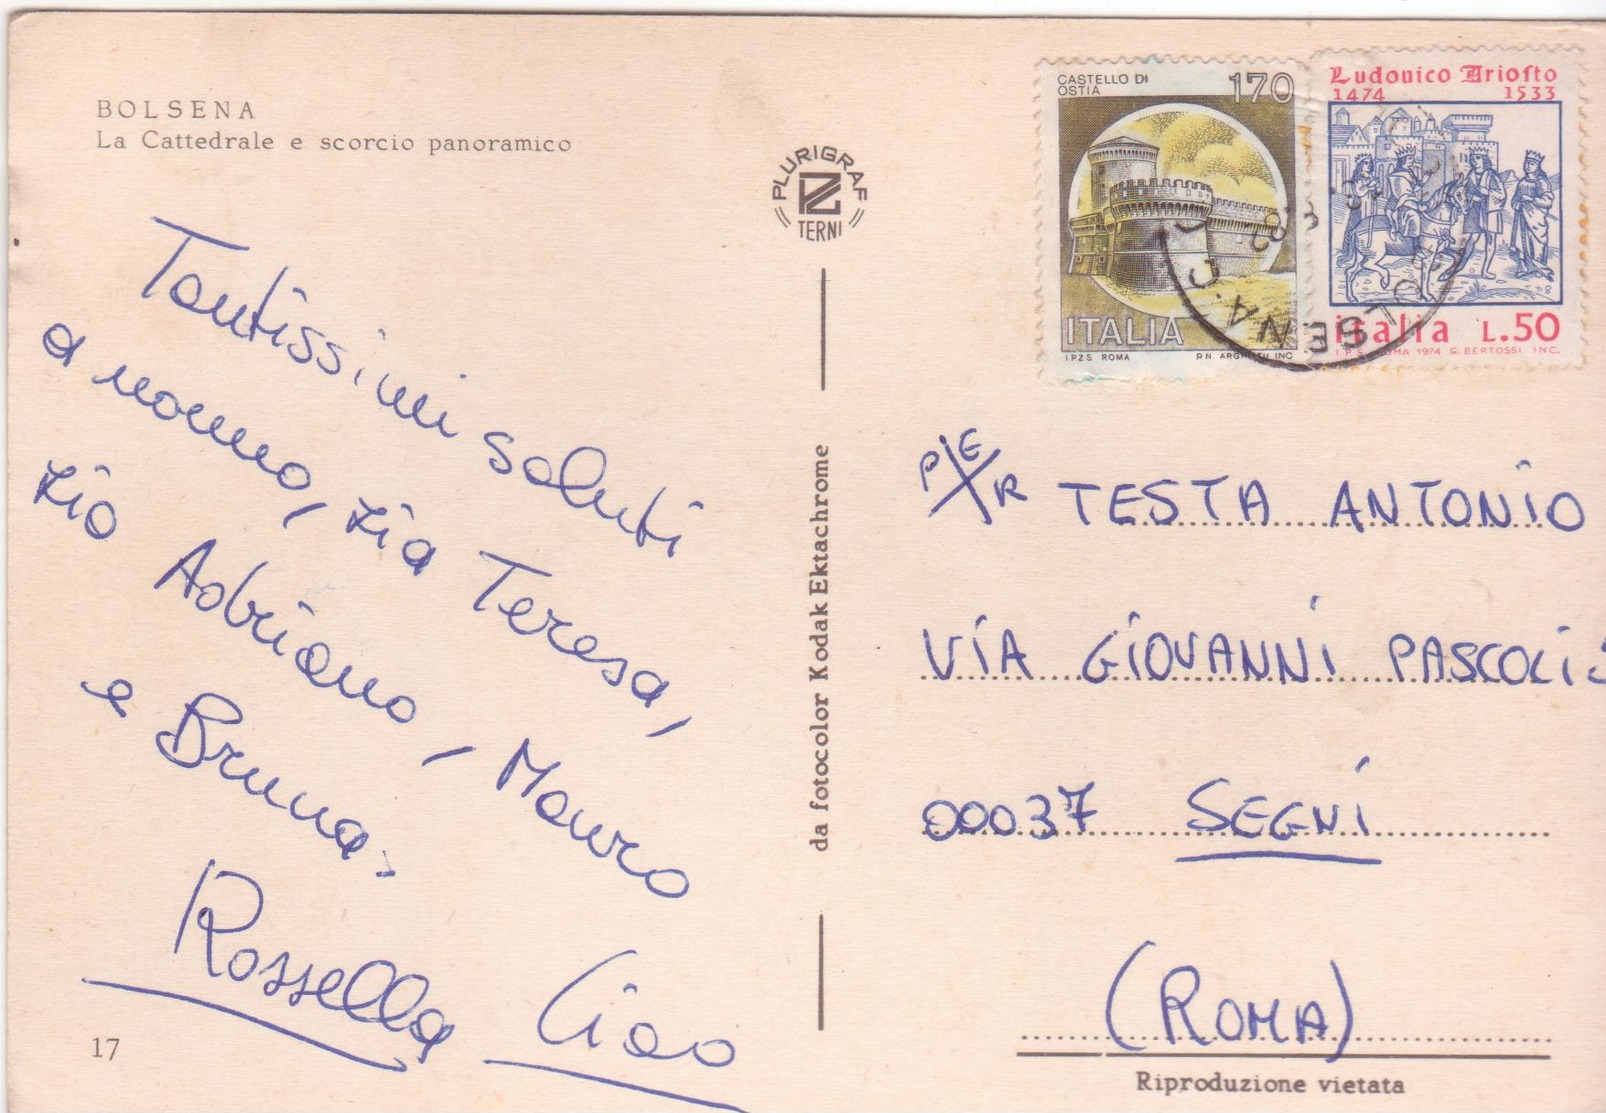 BOLSENA
La Cattedrale e scorcio panoramico
Tantissimi saluti
a nonno, zia Teresa,
zio Adriano, Mauro
e Bruna.
Rossella Ciao
17
PLURIGRAF
TERNI
da fotocolor Kodak Ektachrome
CASTELLO DI
OSTIA
170
ITALIA
I.P.Z.S. ROMA
Ludovico Ariosto
1474 1533
italia L.50
I.P.S. ROMA 1974 G. BERTOSSI INC.
BOLSENA
P/ER TESTA ANTONIO
VIA GIOVANNI PASCOLI
00037 SEGNI
(ROMA)
Riproduzione vietata